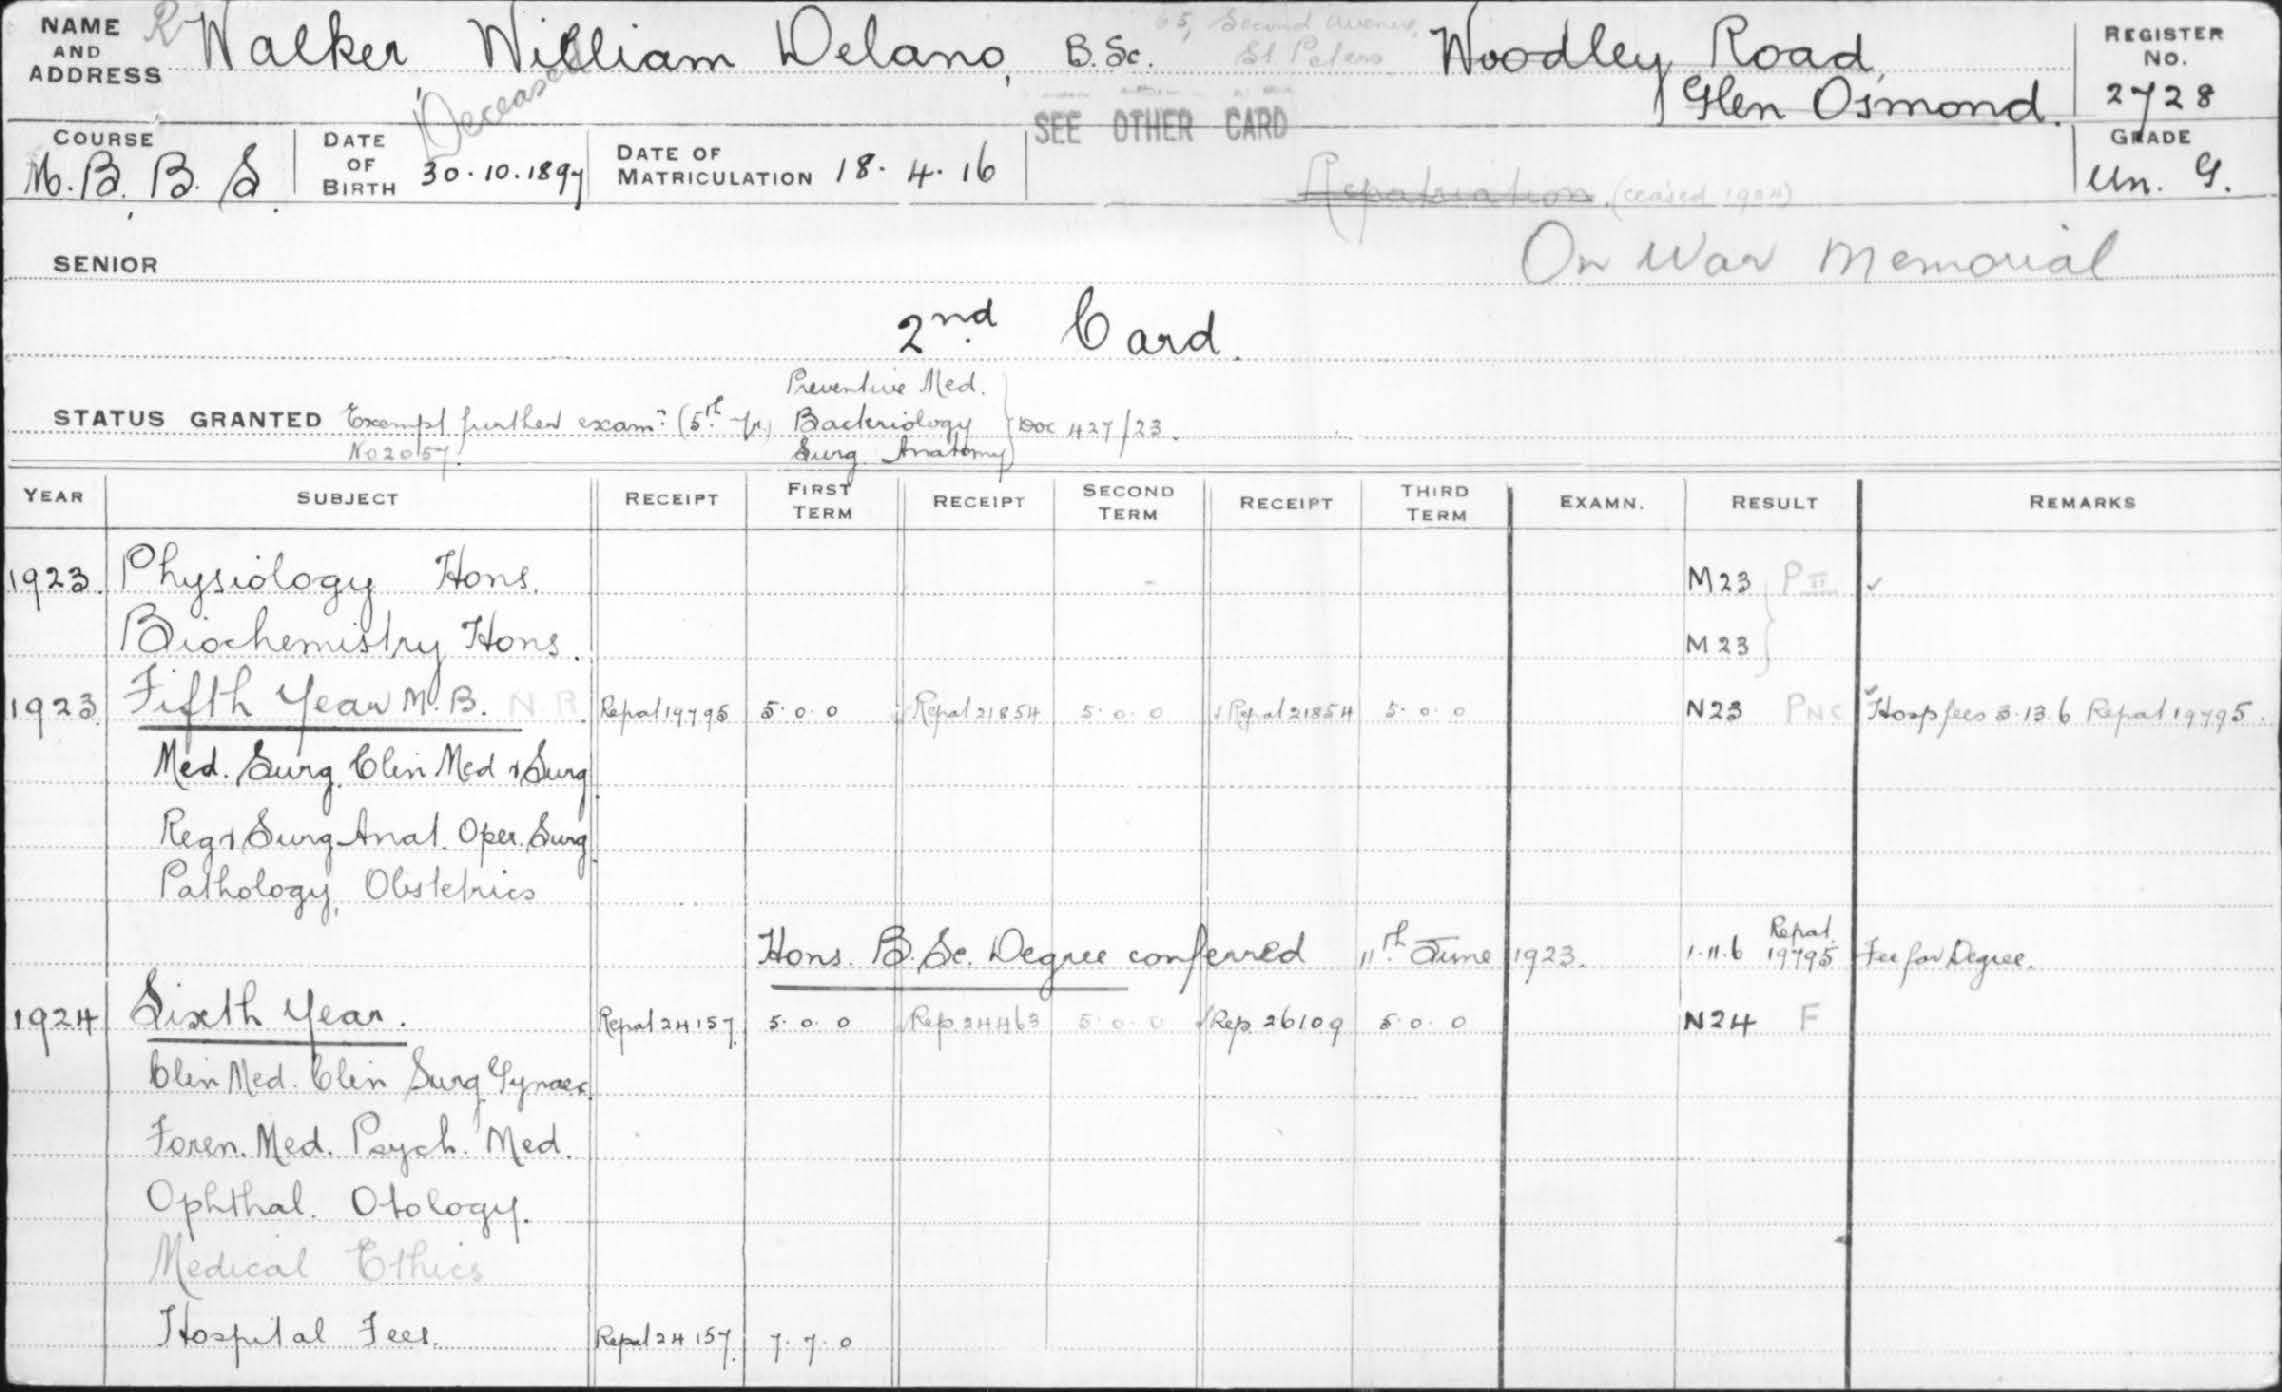 NAME AND ADDRESS R Walker, William Delano, B.Sc. 65, Second Avenue, St Peters Woodley Road, Glen Osmond. REGISTER No. 2728
Deceased
SEE OTHER CARD
COURSE M.B., B.S. DATE OF BIRTH 30.10.1897 DATE OF MATRICULATION 18.4.16 GRADE Un. G.
Repatriation (ceased 1924)
On War Memorial
SENIOR
2nd Card.
STATUS GRANTED Exempt further exam: (5th Yr.) Preventive Med. Bacteriology Surg. Anatomy } Doc 427/23.
No 2057.
YEAR SUBJECT RECEIPT FIRST TERM RECEIPT SECOND TERM RECEIPT THIRD TERM EXAMN. RESULT REMARKS
1923. Physiology Hons. M23 P III ✓
Biochemistry Hons. M23
1923 Fifth Year M.B. N R Repat 19795 5.0.0 ✓Repat 21854 5.0.0 ✓Repat 21854 5.0.0 N23 PNC ✓Hosp fees 3.13.6 Repat 19795.
Med. Surg. Clin Med & Surg
Reg & Surg Anat. Oper. Surg.
Pathology, Obstetrics
Hons. B.Sc. Degree conferred 11th June 1923. 1.11.6 Repat 19795 Fee for Degree.
1924 Sixth Year. Repat 24157 5.0.0 ✓Rep. 24463 5.0.0 ✓Rep. 26109 5.0.0 N24 F
Clin Med. Clin Surg Gynaec.
Foren. Med. Psych. Med.
Ophthal. Otology.
Medical Ethics
Hospital Fees. Repat 24157. 7.7.0